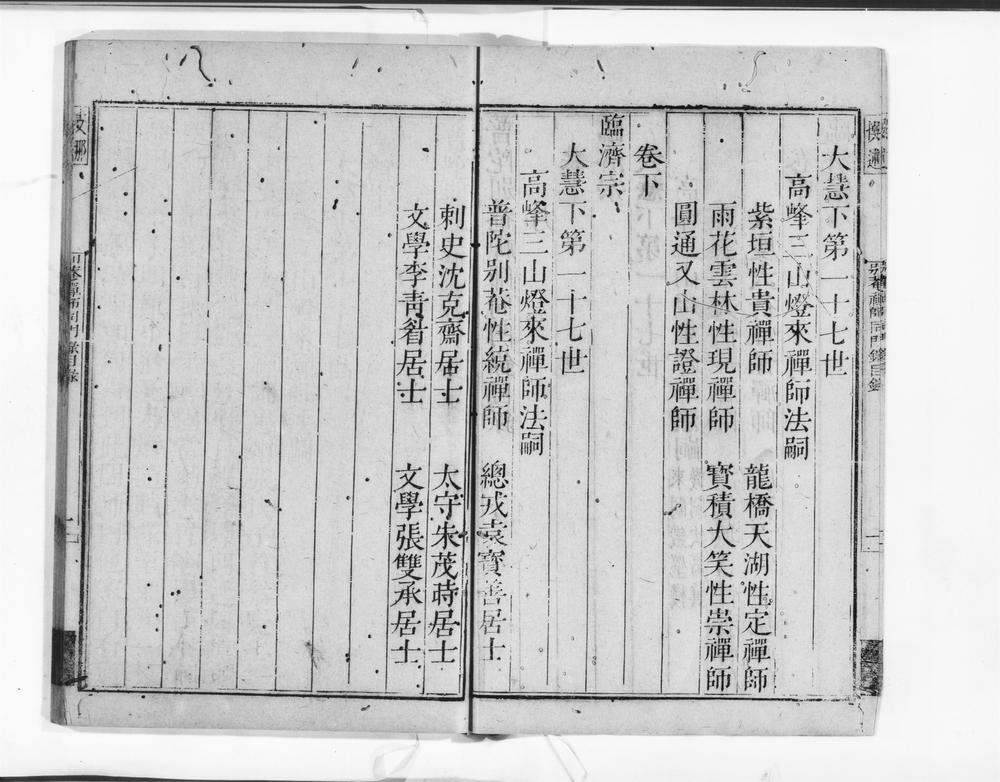 撰述
別菴禪師同門錄目錄
大慧下第一十七世
高峰三山燈來禪師法嗣
紫垣性貴禪師　龍橋天湖性定禪師
雨花雲林性現禪師　寶積大笑性崇禪師
圓通又山性證禪師
卷下
臨濟宗
大慧下第一十七世
高峰三山燈來禪師法嗣
普陀別菴性統禪師　總戎袁寶善居士
刺史沈克齋居士　太守朱茂蒔居士
文學李青㫺居士　文學張雙承居士